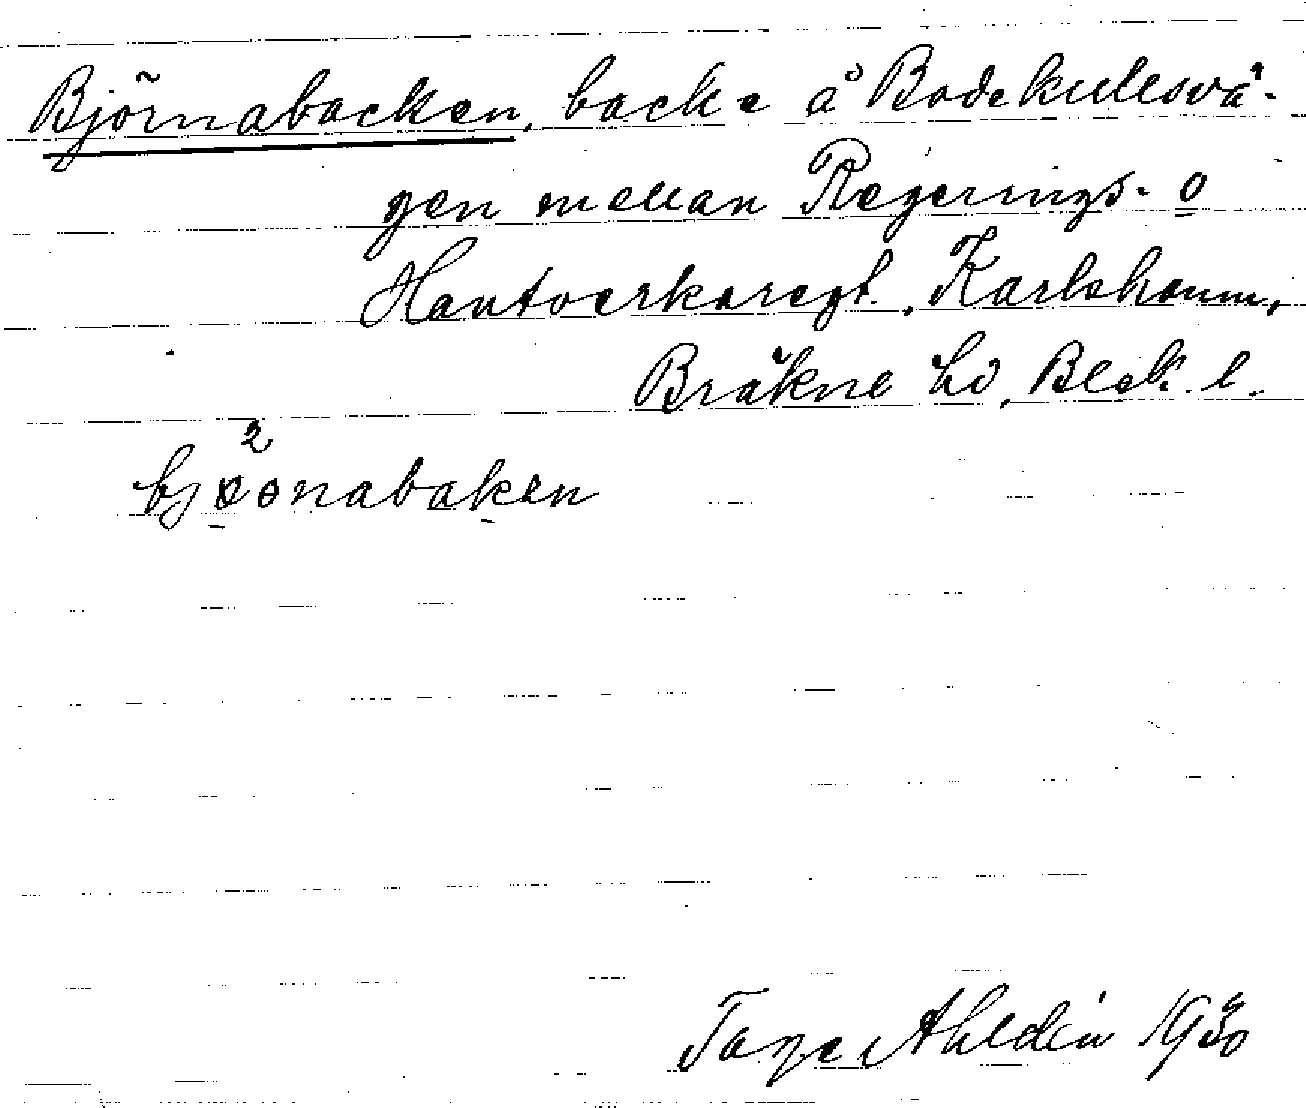 Björnabacken, backe å Bodekullsvä-
gen mellan Regerings- o
Hantverkaregt., Karlshamn,
Bräkne hd, Blek. l.
Tage Ahldén 1930